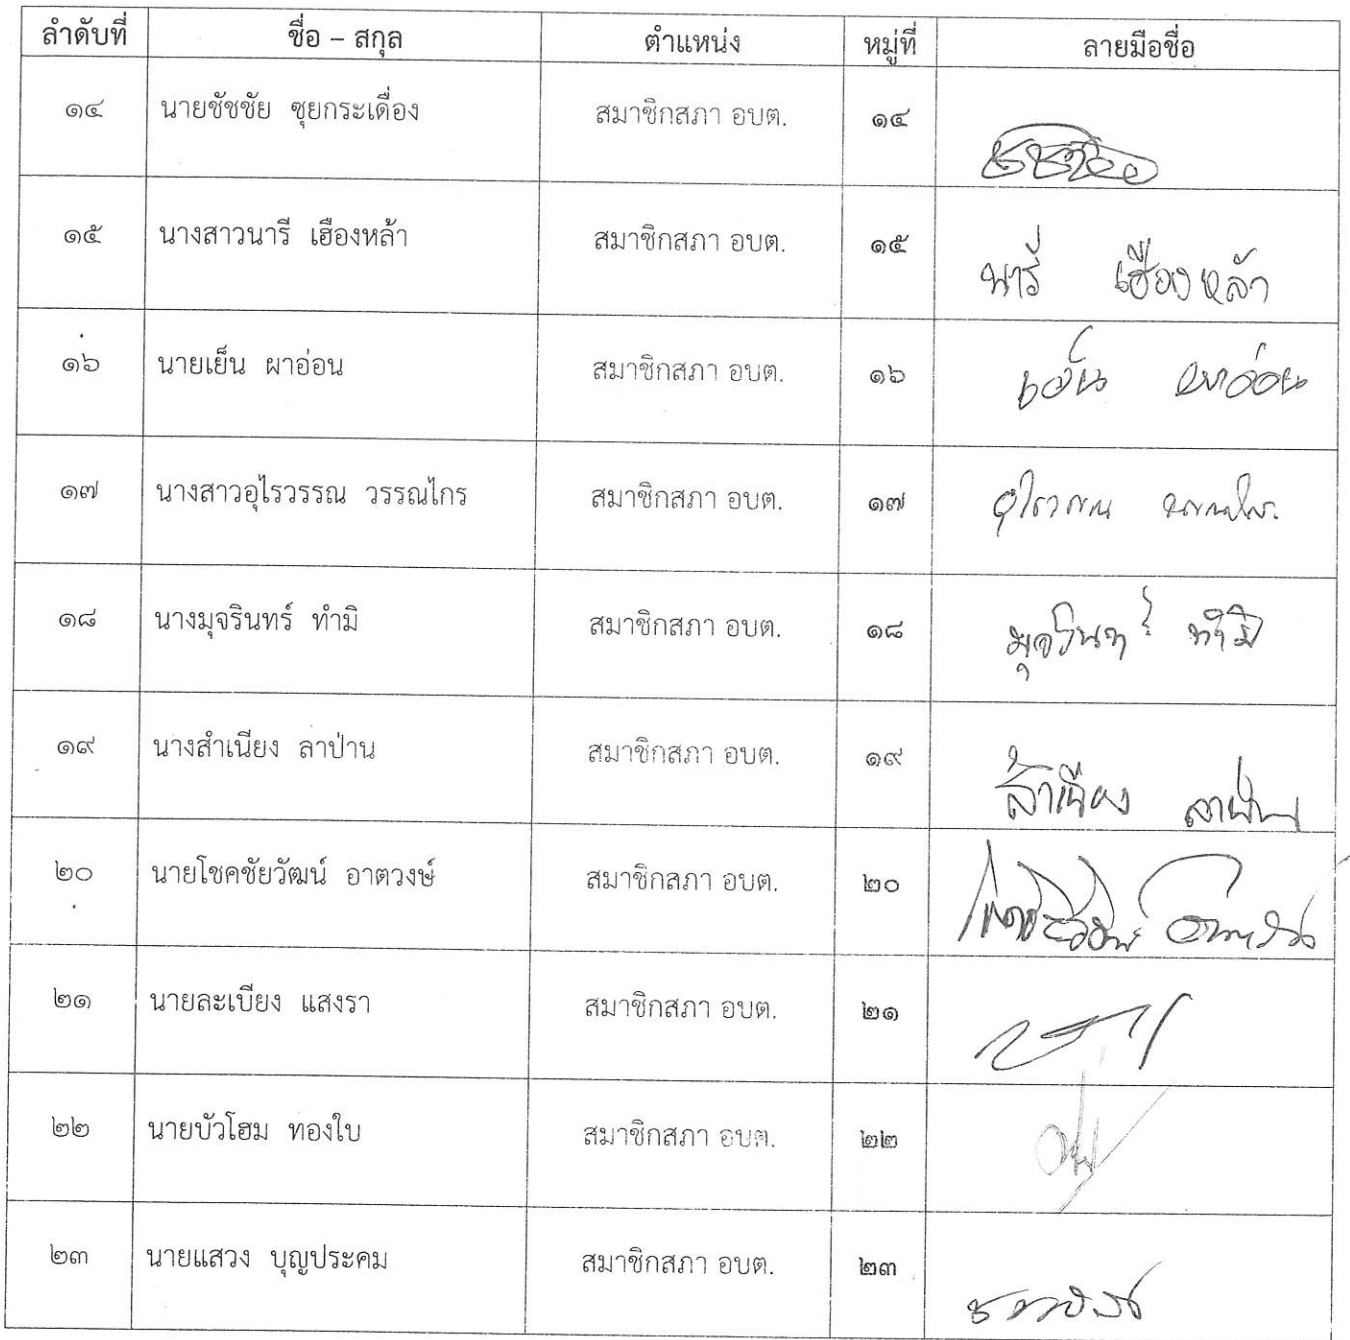 ลำดับที่ ชื่อ – สกุล ตำแหน่ง หมู่ที่ ลายมือชื่อ
๑๔ นายชัชชัย ซุยกระเดื่อง สมาชิกสภา อบต. ๑๔
๑๕ นางสาวนารี เฮืองหล้า สมาชิกสภา อบต. ๑๕ นารี เฮืองหล้า
๑๖ นายเย็น ผาอ่อน สมาชิกสภา อบต. ๑๖ เย็น ผาอ่อน
๑๗ นางสาวอุไรวรรณ วรรณไกร สมาชิกสภา อบต. ๑๗ อุไรวรรณ วรรณไกร
๑๘ นางมุจรินทร์ ทำมิ สมาชิกสภา อบต. ๑๘ มุจรินทร์ ทำมิ
๑๙ นางสำเนียง ลาป่าน สมาชิกสภา อบต. ๑๙ สำเนียง ลาป่าน
๒๐ นายโชคชัยวัฒน์ อาตวงษ์ สมาชิกสภา อบต. ๒๐
๒๑ นายละเบียง แสงรา สมาชิกสภา อบต. ๒๑
๒๒ นายบัวโฮม ทองใบ สมาชิกสภา อบต. ๒๒
๒๓ นายแสวง บุญประคม สมาชิกสภา อบต. ๒๓